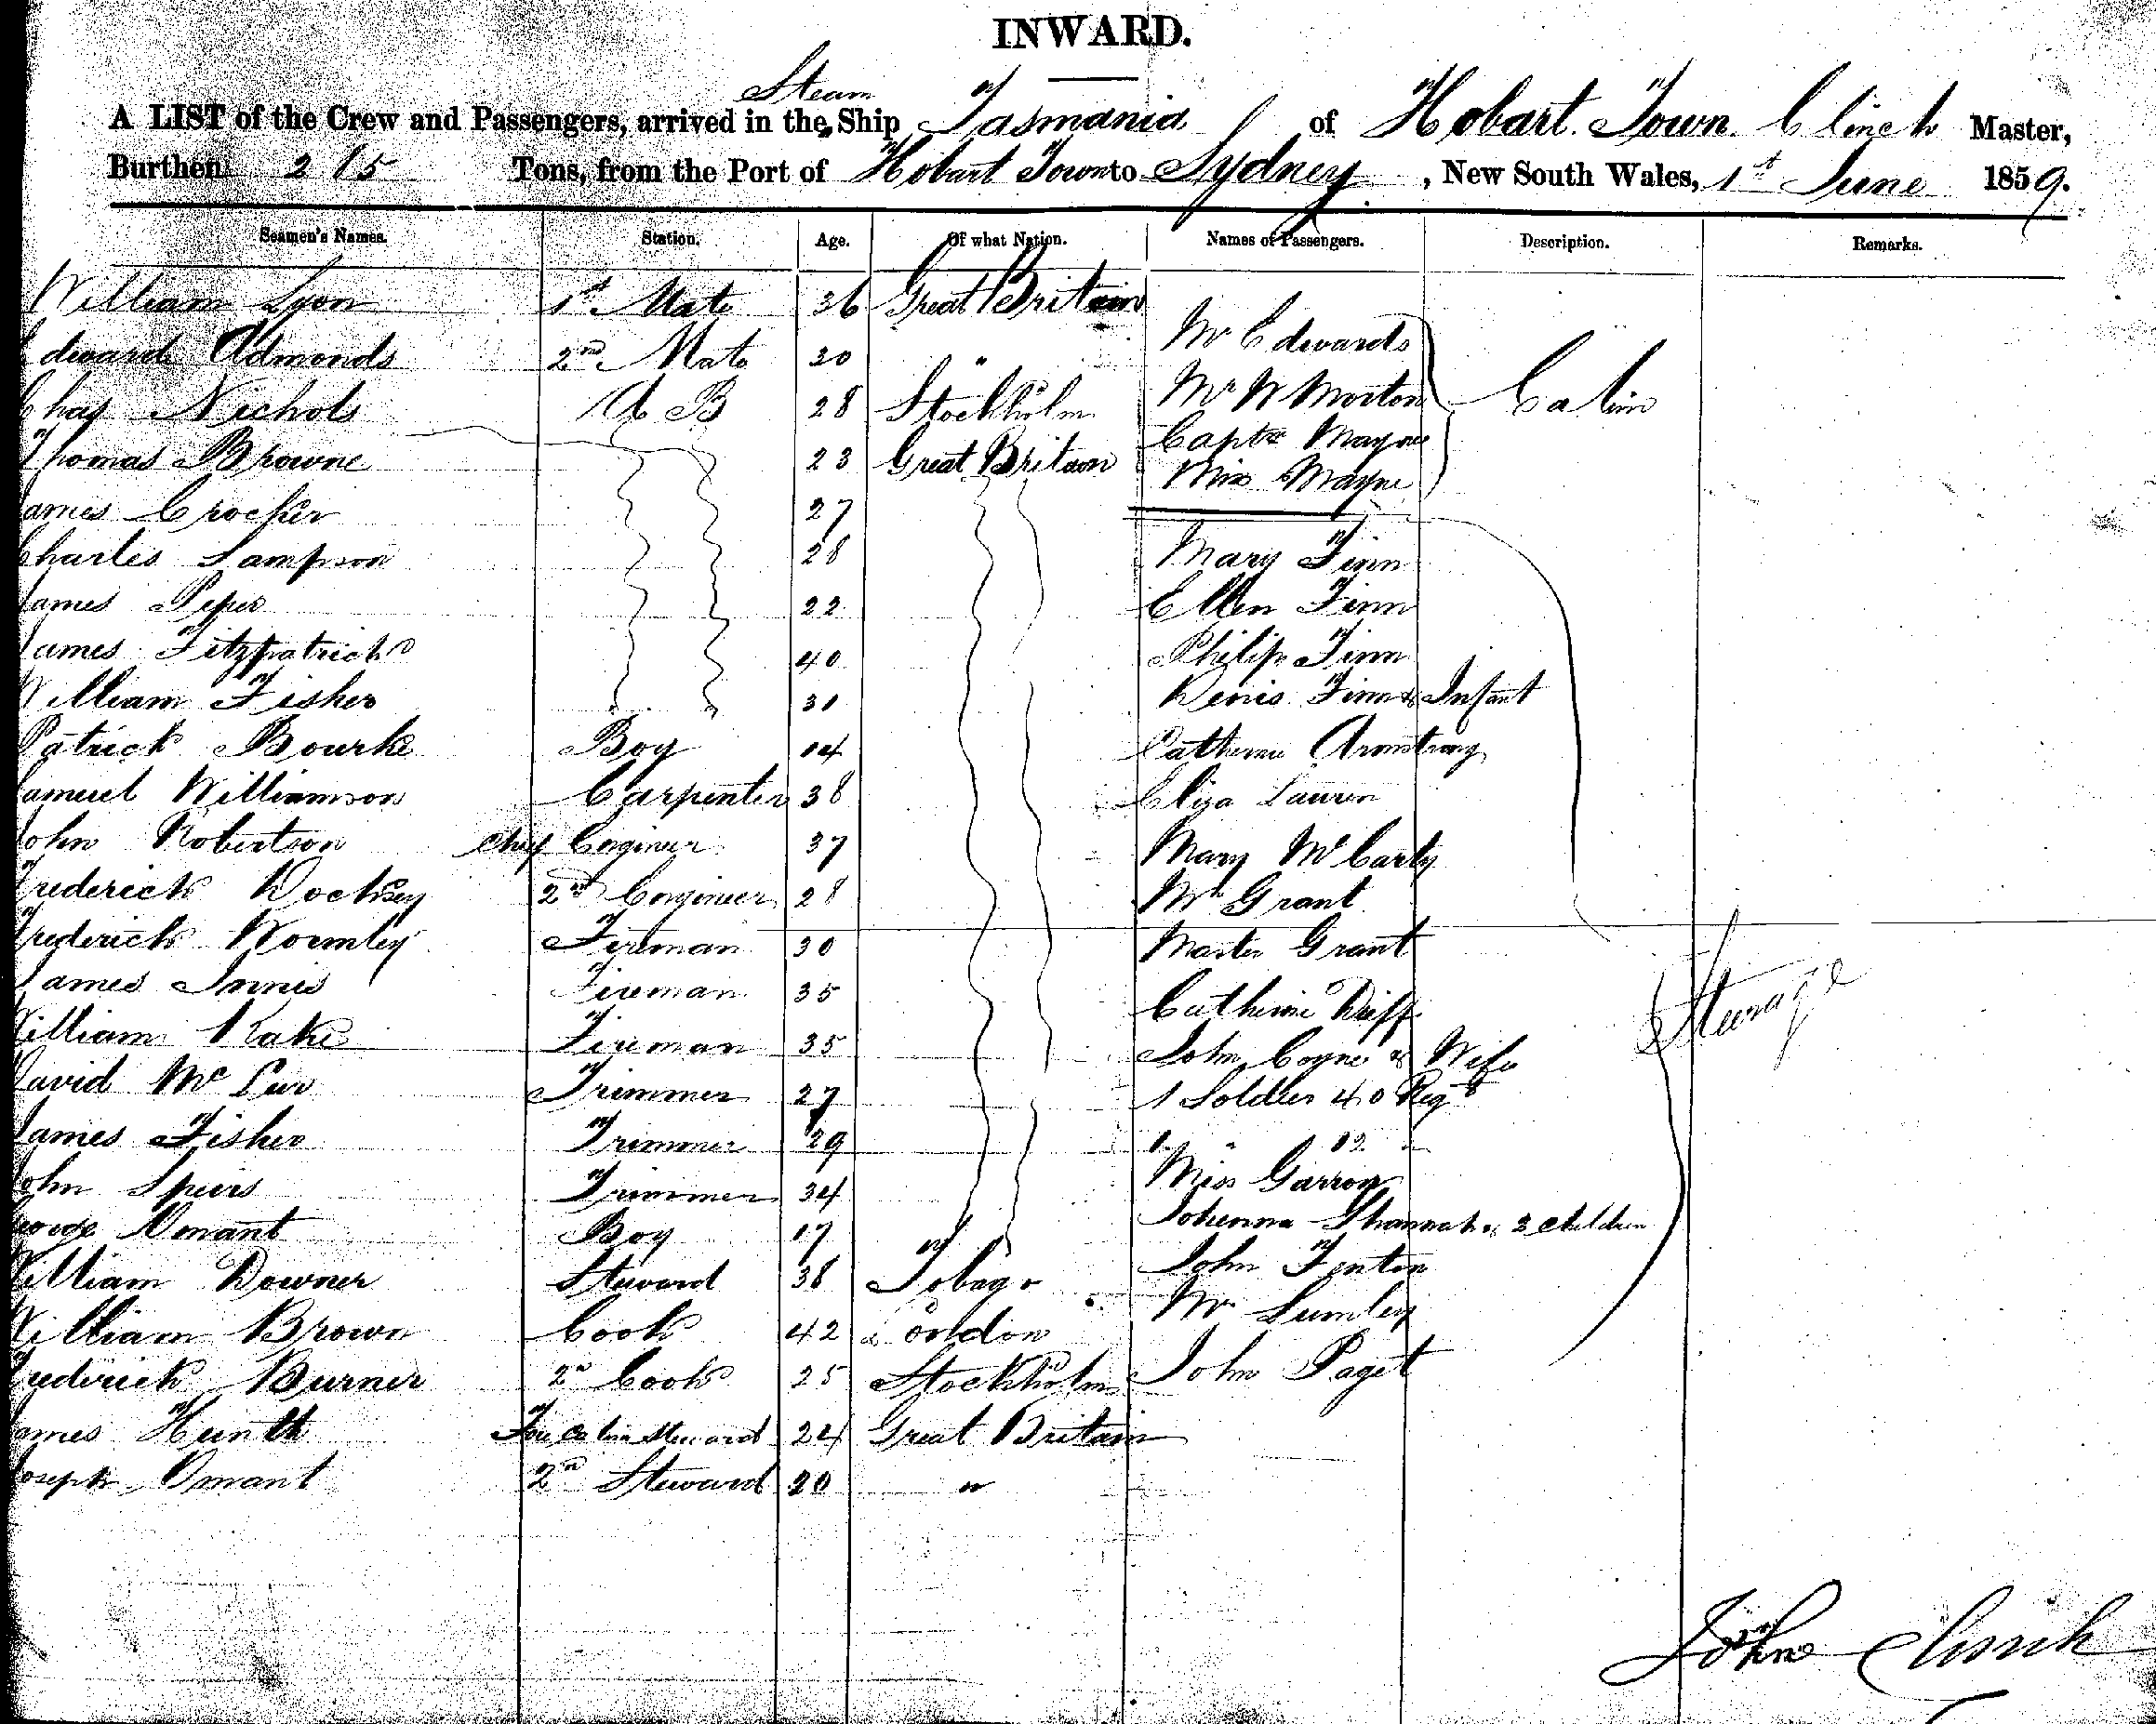 INWARD.
A LIST of the Crew and Passengers, arrived in the Steam Ship Tasmania of Hobart Town Clinch Master,
Burthen 215 Tons, from the Port of Hobart Town to Sydney, New South Wales, 1st June 1859.
Seamen's Names. Station. Age. Of what Nation. Names of Passengers. Description. Remarks.
William Lyon 1st Mate 36 Great Britain
Edward Admonds 2nd Mate 30 " Mr Edwards
Chas Nichols A B 28 Stockholm Mr W Morton Cabin
Thomas Browne 23 Great Britain Captn Mayne
Miss Mayne
James Crocker 27
Charles Sampson 28 Mary Finn
James Piper 22 Ellen Finn
James Fitzpatrick 40 Philip Finn
William Fisher 30 Denis Finn & Infant
Patrick Bourke Boy 14 Catherine Armstrong
Samuel Williamson Carpenter 38 Eliza
John Robertson Chief Engineer 37 Mary McCarty
Frederick 2nd Engineer 28 Mr Grant
Frederick Wormley Fireman 30 Master Grant
James Innis Fireman 35 Catherine
William Fireman 35 John Coyne & Wife Steerage
David Mc Trimmer 27 1 Soldier 40 Regt
James Fisher Trimmer 29 1 " 12 "
John Spiers Trimmer 34 Miss Garron
George Boy 17 Johanna & 2 children
William Downer Steward 38 Tobago John Fenton
William Brown Cook 42 London Mr Lumley
Frederick Burner 2nd Cook 25 Stockholm John Paget
James Fore Cabin Steward 24 Great Britain
Joseph Omant 2nd Steward 20 "
John Clinch